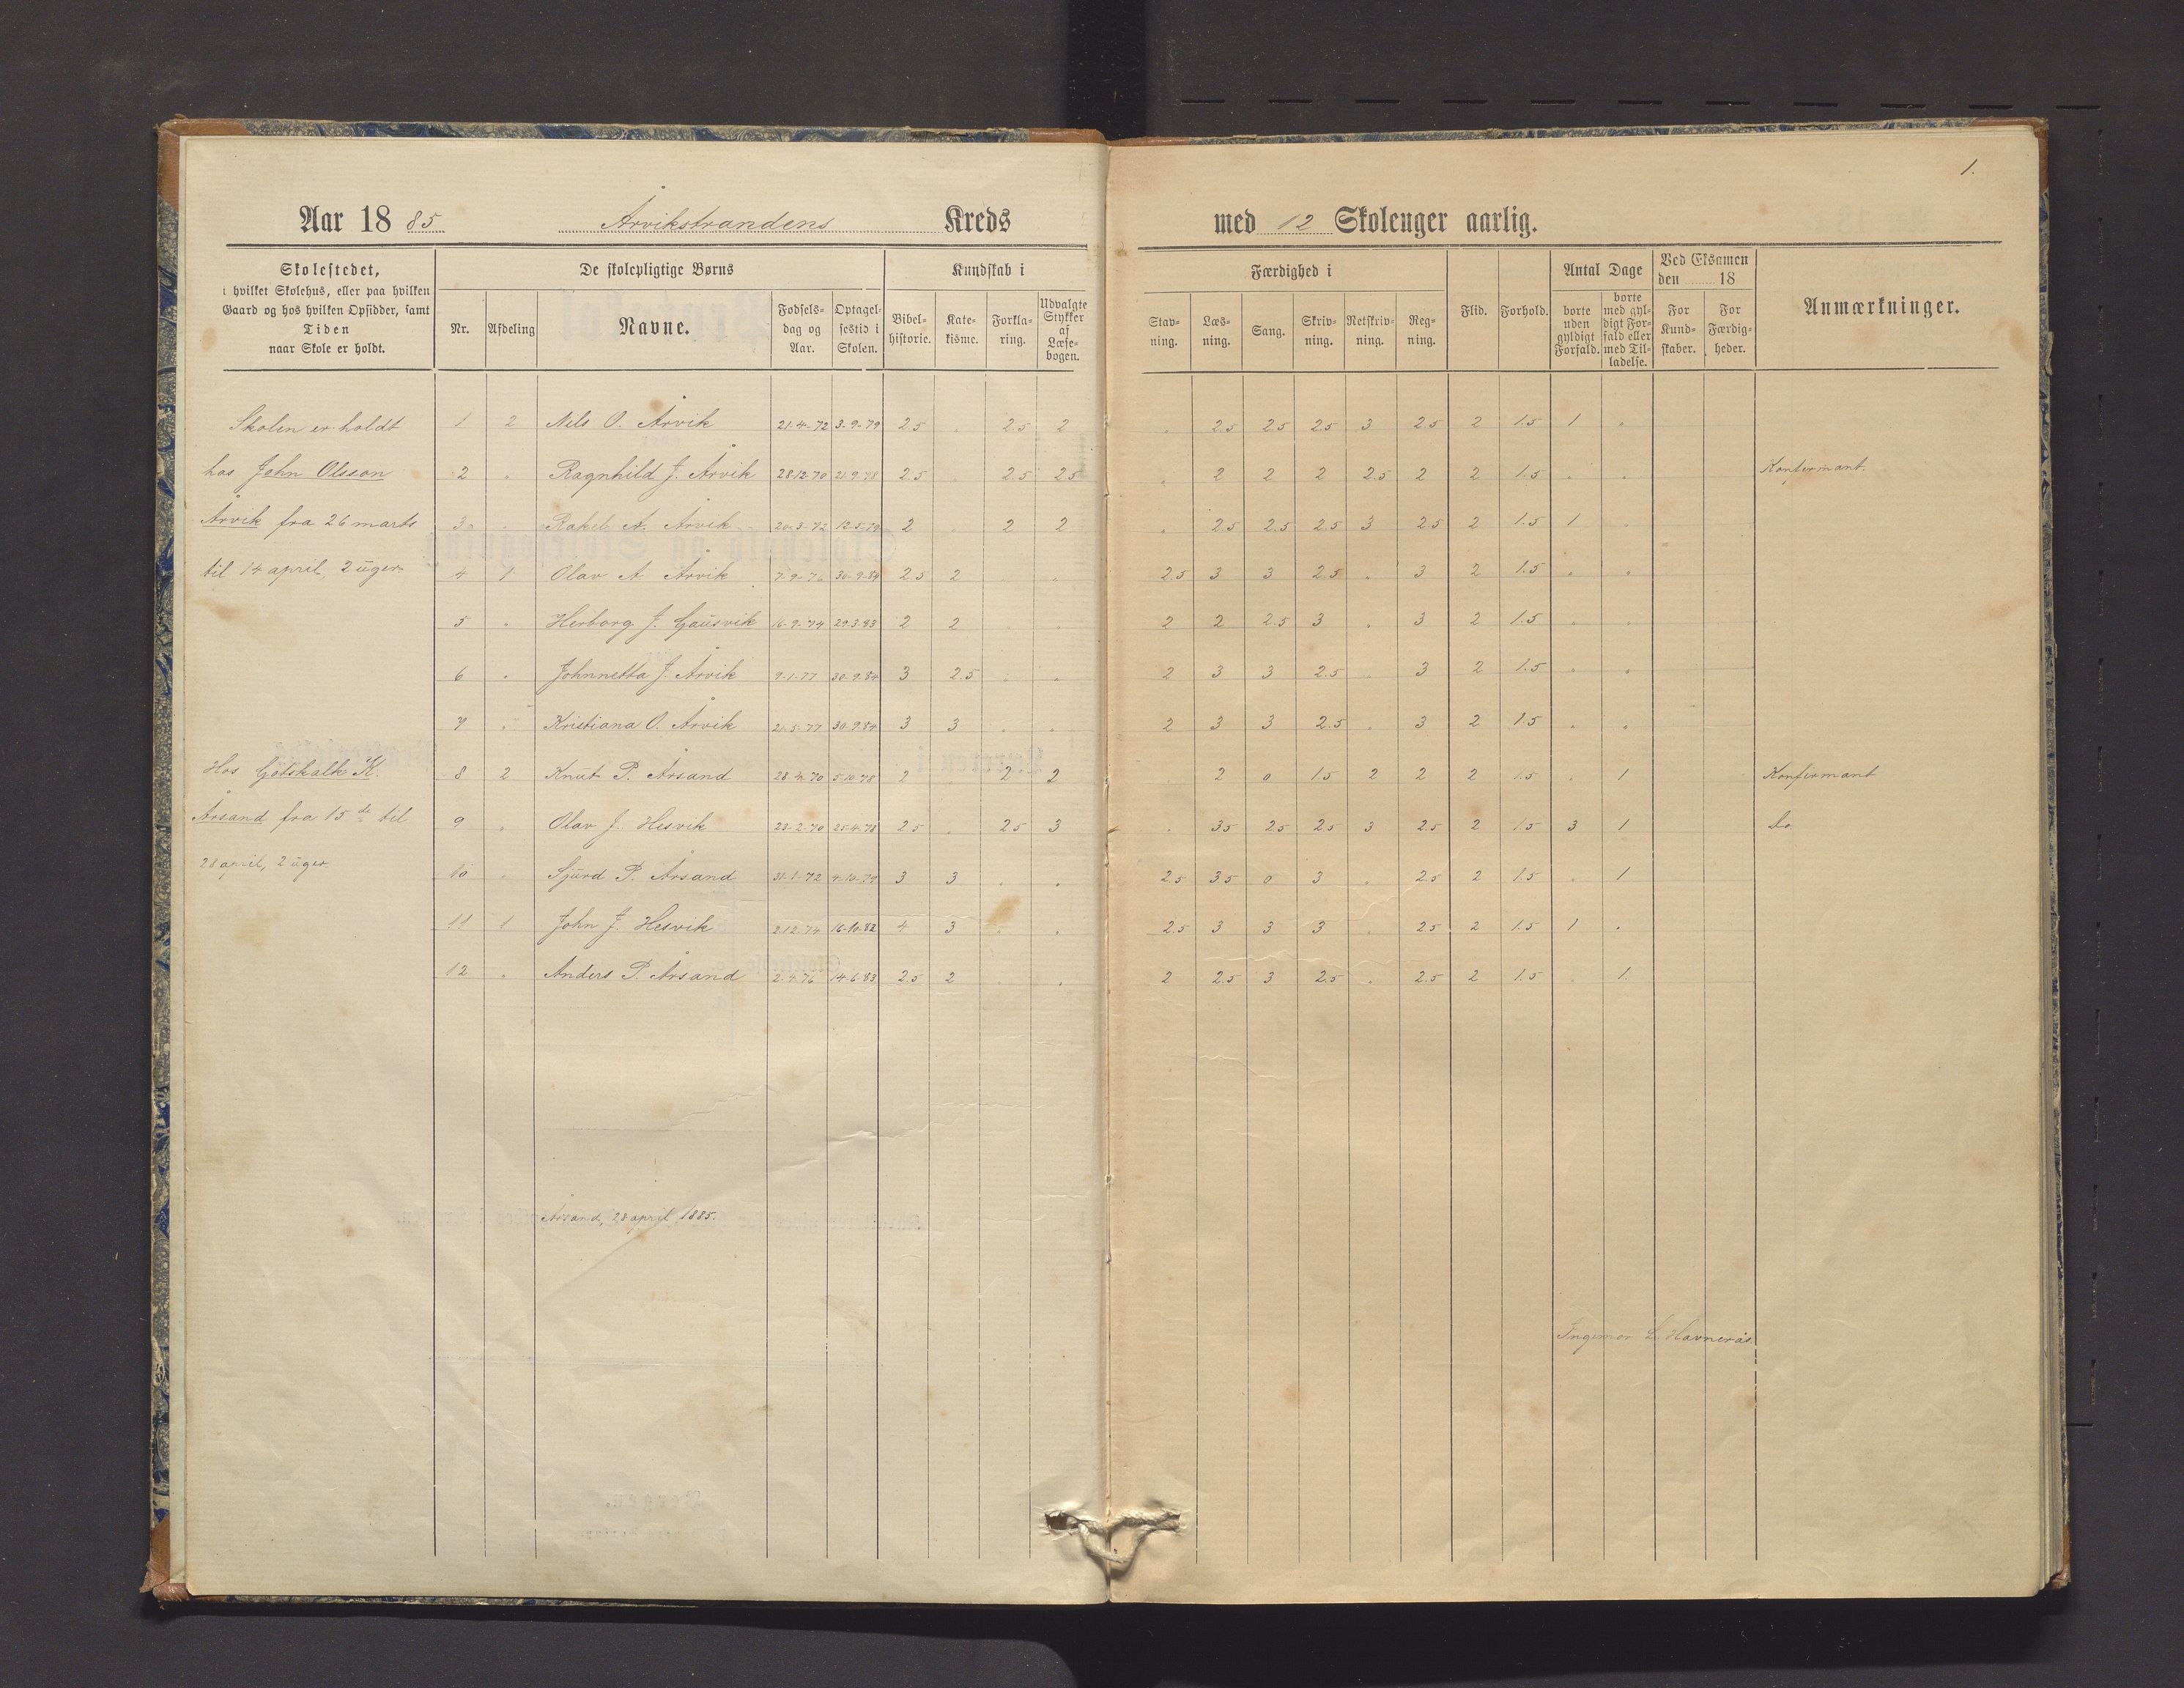 1.
Aar 1885 Årvikstrandens Kreds med 12 Skoleuger aarlig.
Skolestedet,
i hvilket Skolehus, eller paa hvilken
Gaard og hos hvilken Opsidder, samt
Tiden
naar Skole er holdt.
De skolepligtige Børns
Nr. Afdeling Navne. Fødselsdag og Aar. Optagelsestid i Skolen.
Kundskab i
Bibelhistorie. Katekisme. Forklaring. Udvalgte Stykker af Læsebogen.
Færdighed i
Stavning. Læsning. Sang. Skrivning. Retskrivning. Regning.
Flid. Forhold.
Antal Dage
borte uden gyldigt Forfald. borte med gyldigt Forfald eller med Tilladelse.
Ved Eksamen den 18
For Kundskaber. For Færdigheder.
Anmærkninger.
Skolen er holdt
hos John Olsson
Årvik fra 26 marts
til 14 april, 2 uger
Hos Gotskalk K.
Årsand fra 15de til
28 april, 2 uger
1 2 Nils O. Årvik 21-4-72 3-9-79 2.5 . 2.5 2 . 2.5 2.5 2.5 3 2.5 2 1.5 1 .
2 " Ragnhild J. Årvik 28.12.70 2.5 . 2.5 2.5 . 2 2 2 2.5 2 2 1.5 . . Konfirmant.
3 " Rakel A. Årvik 20-3-72 2 . 2 2 . 2.5 2.5 2.5 3 2.5 2 1.5 1 .
4 1 Olav A. Årvik 7-9-76 30-9-84 2.5 2 . . 2.5 3 3 2.5 . 3 2 1.5 . .
5 " Herborg J. Gausvik 16-9-74 29.3.83 2 2 . . 2 2 2.5 3 . 3 2 1.5 . .
6 " Johnnetta J. Årvik 9-1-77 30.9.84 3 2.5 . . 2 3 3 2.5 . 3 2 1.5 . .
7 " Kristiana O. Årvik 30.9.84 3 3 . . 2 3 3 2.5 . 3 2 1.5 . .
8 2 Knut P. Årsand 28-4-70 5.10.78 2 . 2 2 . 2 0 1.5 2 2 2 1.5 . 1 Konfirmant
9 " Olav J. Hesvik 23-2-70 25-4-78 2.5 . 2.5 3 . 3.5 2.5 2.5 3 2.5 2 1.5 3 1 Do
10 " Sjurd P. Årsand 31-1-72 3 3 . . 2.5 3.5 0 3 . 2.5 2 1.5 . 1
11 1 John J. Hesvik 2.12.74 16-10-82 4 3 . . 2.5 3 3 3 . 2.5 2 1.5 1 .
12 " Anders P. Årsand 2-4-76 14-6-83 2.5 2 . . 2 2.5 3 2.5 . 2.5 2 1.5 . 1.
Årsand, 28 april 1885.
Ingemor L. Havnerås